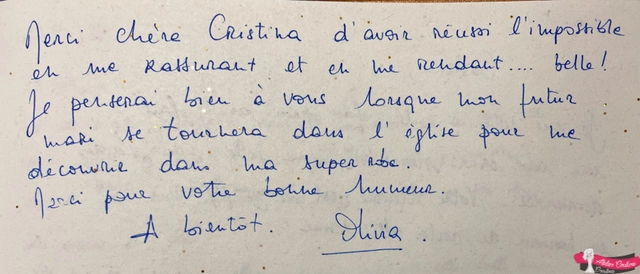 Merci chère Cristina d'avoir réussi l'impossible
en me rassurant et en me rendant.... belle!
Je penserai bien à vous lorsque mon futur
mari se tournera dans l'église pour me
découvrir dans ma super robe.
Merci pour votre bonne humeur.
A bientôt. Olivia.
Atelier Couture